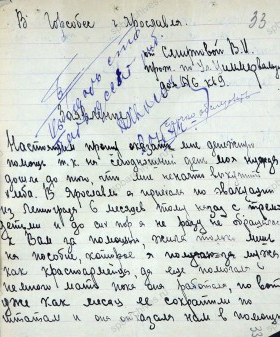 В Горсобес г. Ярославля.
33
от
В.И.
прож. по ул.
Заявление
Настоящим прошу оказать мне денежную
помощь т.к. на сегодняшний день моя нужда
дошла до того, что мне нечем выкупить
хлеба. В Ярославль я приехала по эвакуации
из Ленинграда 6 месяцев тому назад с тремя
детьми и до сих пор я не разу не обращалась
к Вам за помощью, жила только лишь
на пособие, которое я получаю за мужа
как красноармейца, да еще помогала
немного мать пока она работала, но вот
уже как месяц ее сократили по
штатам и она отказала нам в помощи